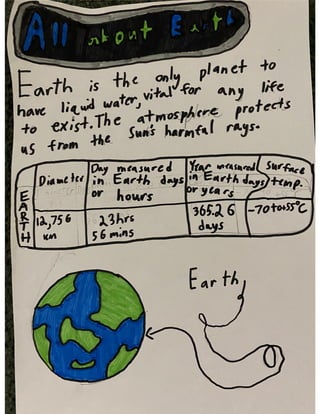 All about Earth
Earth is the only planet to
have liquid water, vital for any life
to exist. The atmosphere protects
us from the Sun's harmful rays.
Diameter
Day measured
in Earth days
or hours
Year measured
in Earth days
or years
Surface
temp.
EARTH
12,756
km
23hrs
56 mins
365.26
days
-70 to +55°C
Earth